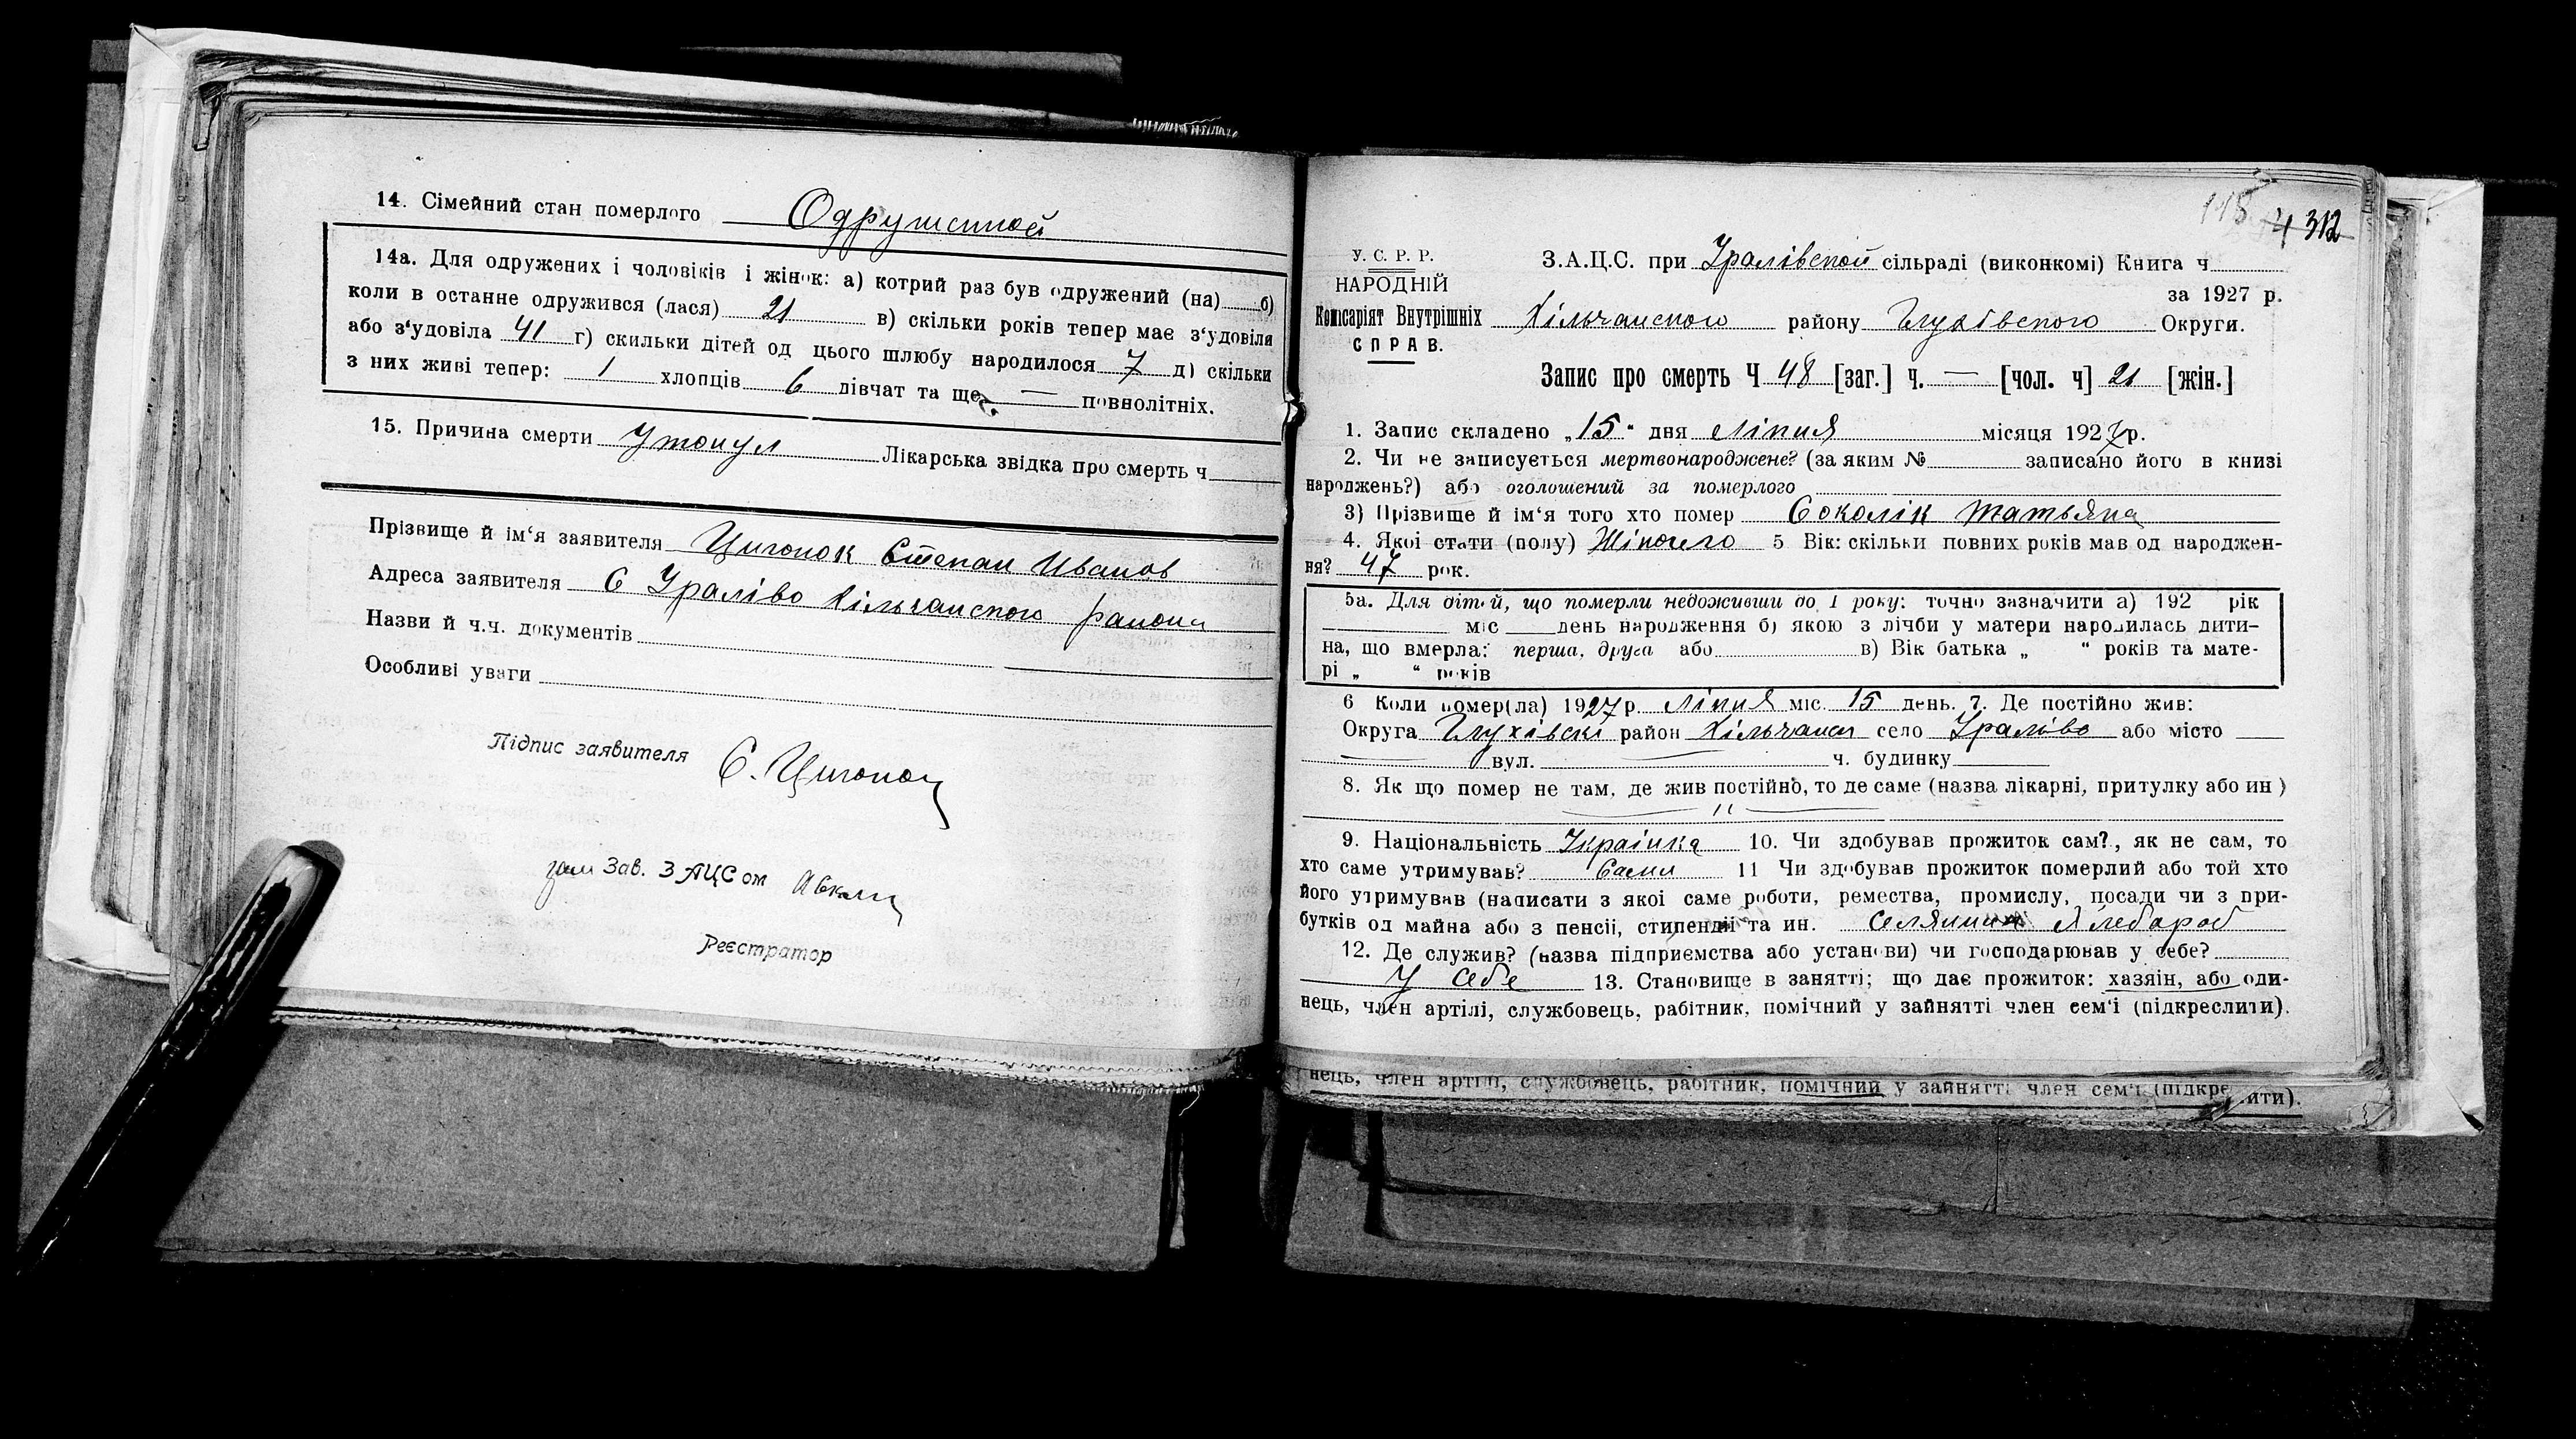 14. Сімейний стан померлого Одруженной
14а. Для одружених і чоловіків і жінок: а) котрий раз був одружений (на) б)
коли в останне одружився (лася) 21 в) скільки років тепер має з‘удовіля
або з‘удовіла 41 г) скильки дітей од цього шлюбу народилося 7 д) скільки
з них живі тепер: 1 хлопців 6 дівчат та ще — повнолітніх.
15. Причина смерти Утонул Лікарська звідка про смерть ч
Прізвище й ім‘я заявителя Цигонок Степан Иванов
Адреса заявителя С Уралівo Хільчанского района
Назви й ч.ч. документів
Особливі уваги
Підпис заявителя С. Цигонок
Зав. ЗАЦСом
Реєстратор
118 4 312
У. С. Р. Р.
НАРОДНІЙ
Комісаріят Внутрішніх
СПРАВ.
З.А.Ц.С. при Уралівской сільраді (виконкомі) Книга ч
за 1927 р.
Хільчанского району Глухівского Округи.
Запис про смерть Ч 48 [заг.] ч. — [чол. ч] 21 [жін.]
1. Запис складено „15“ дня Ліпня місяця 1927 р.
2. Чи не записується мертвонароджене? (за яким № записано його в книзі
народжень?) або оголошений за померлого
3) Прізвище й ім‘я того хто помер Соколік Татьяна
4. Якої стати (полу) Жіночего 5 Вік: скільки повних років мав од народжен-
ня? 47 рок.
5а. Для дітей, що померли недоживши до 1 року: точно зазначити а) 192 рік
міс день народження б) якою з лічби у матери народилась дити-
на, що вмерла: перша, друга або в) Вік батька „ “ років та мате-
рі „ “ років
6 Коли помер(ла) 1927 р. Ліпня міс. 15 день. 7. Де постійно жив:
Округа Глухівскі район Хільчанск село Уралівo або місто —
— вул. — ч. будинку —
8. Як що помер не там, де жив постійно, то де саме (назва лікарні, притулку або ин )
— " —
9. Національність Українка 10. Чи здобував прожиток сам?, як не сам, то
хто саме утримував? Сами 11 Чи здобував прожиток померлий або той хто
його утримував (написати з якої саме роботи, ремества, промислу, посади чи з при-
бутків од майна або з пенсії, стипендії та ин. Селянин Хлебороб
12. Де служив? (назва підприємства або установи) чи господарював у себе?
У себе 13. Становище в занятті; що дає прожиток: хазяін, або оди-
нець, член артілі, службовець, рабітник, помічний у зайнятті член сем‘і (підкреслити).
нець, член артілі, службовець, рабітник, помічний у зайнятті член сем‘і (підкре ити).